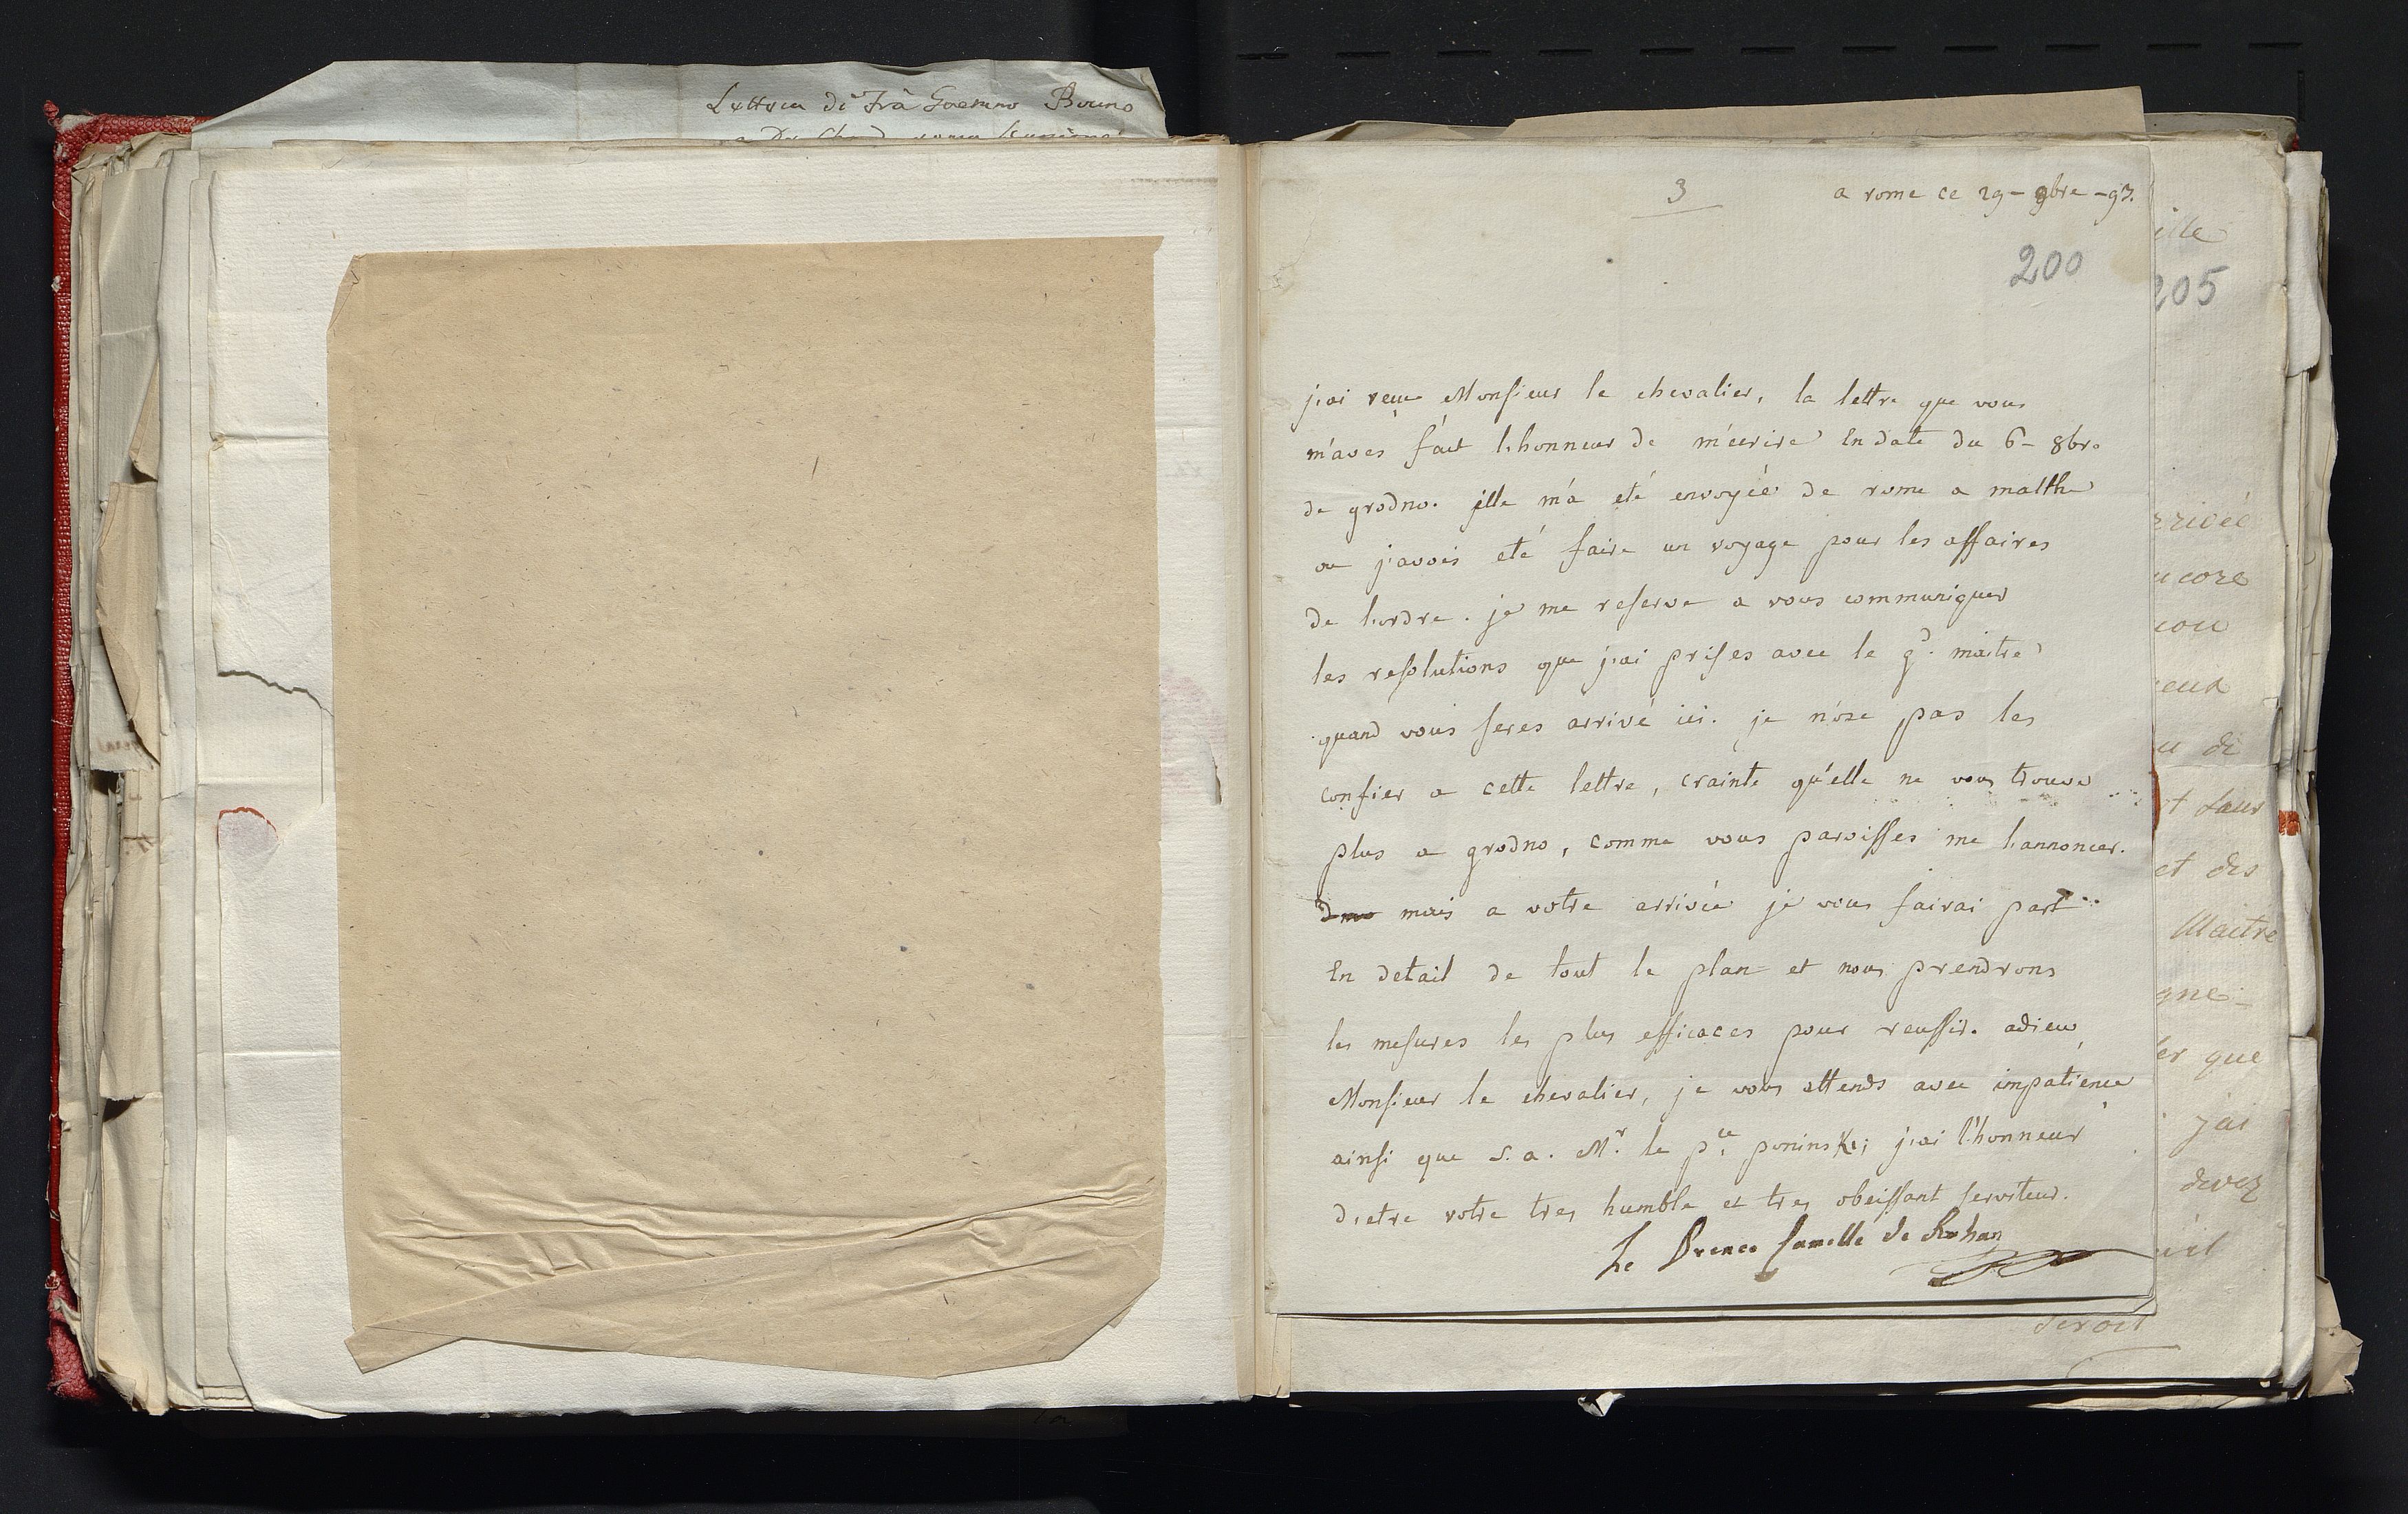 Lettera di Frà Gaetano Bruno
3
a rome ce 29 - 9bre - 93.
200
j'ai reçue Monsieur le chevalier, la lettre que vous
m'aves fait l'honneur de m'ecrire En date du 6 - 8bre
de grodno. elle m'a eté envoyée de rome a malthe
ou j'avois eté faire un voyage pour les affaires
de l'ordre. je me reserve a vous communiquer
les resolutions que j'ai prises avec le gd. maitre
quand vous seres arrivé ici. je n'ose pas les
confier a cette lettre, crainte qu'elle ne vous trouve
plus a grodno, comme vous paroisses me l'annoncer.
mais a votre arrivée je vous fairai part
En detail de tout le plan et nous prendrons
les mesures les plus efficaces pour reussir. adieu,
Monsieur le chevalier, je vous attends avec impatience
ainsi que s. a. Mr. le pce. poninski; j'ai l'honneur
d'etre votre tres humble et tres obeissant serviteur.
Le Prince Camille de Rohan
ille
205
rrivée
ucore
di
et des
Maitre
gne
er que
j'ai
devez
seroit